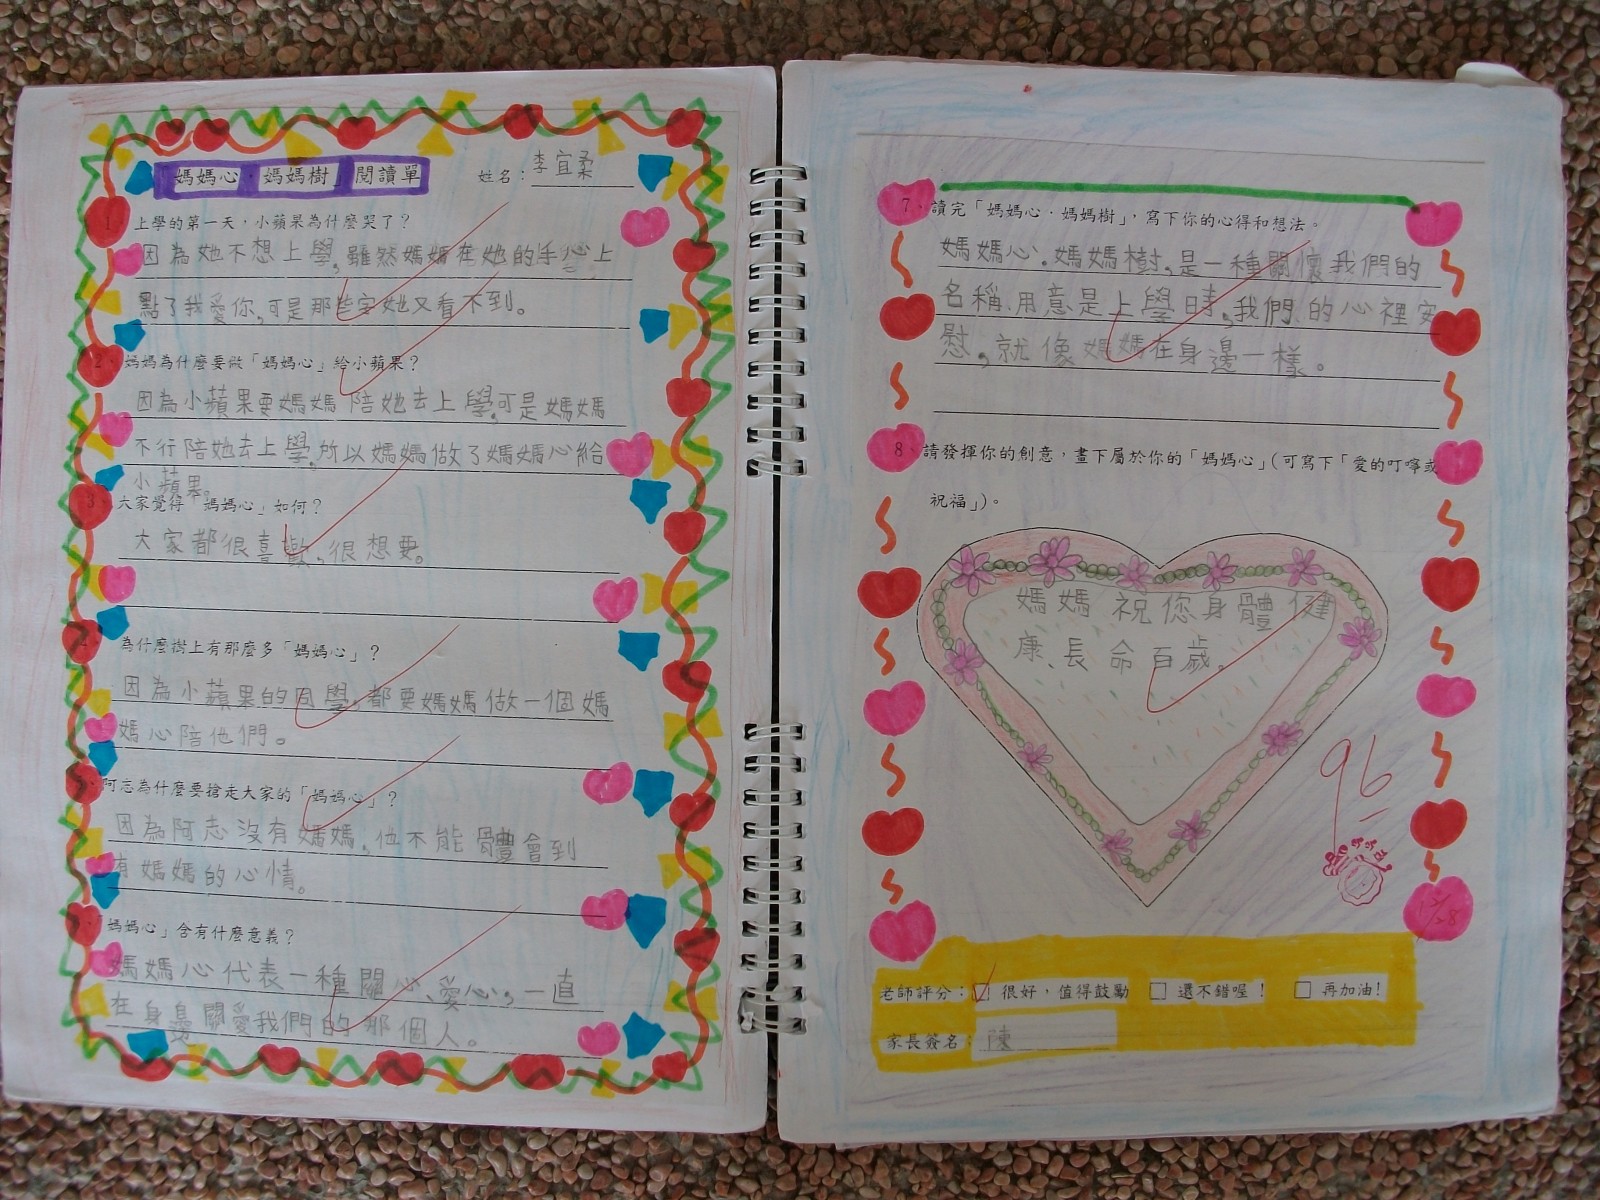 「媽媽心‧媽媽樹」閱讀單
姓名：李宜柔
1、上學的第一天，小蘋果為什麼哭了？
因為她不想上學,雖然媽媽在她的手心上
點了我愛你,可是那些字她又看不到。
2、媽媽為什麼要做「媽媽心」給小蘋果？
因為小蘋果要媽媽陪她去上學,可是媽媽
不行陪她去上學,所以媽媽做了媽媽心給
小蘋果。
3、大家覺得「媽媽心」如何？
大家都很喜歡、很想要。
為什麼樹上有那麼多「媽媽心」？
因為小蘋果的同學,都要媽媽做一個媽
媽心陪他們。
阿志為什麼要搶走大家的「媽媽心」？
因為阿志沒有媽媽,他不能體會到
有媽媽的心情。
「媽媽心」含有什麼意義？
媽媽心代表一種關心、愛心,一直
在身邊關愛我們的那個人。
7、讀完「媽媽心‧媽媽樹」，寫下你的心得和想法。
媽媽心.媽媽樹,是一種關懷我們的
名稱、用意是上學時,我們的心裡安
慰,就像媽媽在身邊一樣。
8、請發揮你的創意，畫下屬於你的「媽媽心」(可寫下「愛的叮嚀或
祝福」)。
媽媽祝您身體健
康、長命百歲。
96
12/28
老師評分：☑ 很好，值得鼓勵 □ 還不錯喔！ □ 再加油！
家長簽名：陳